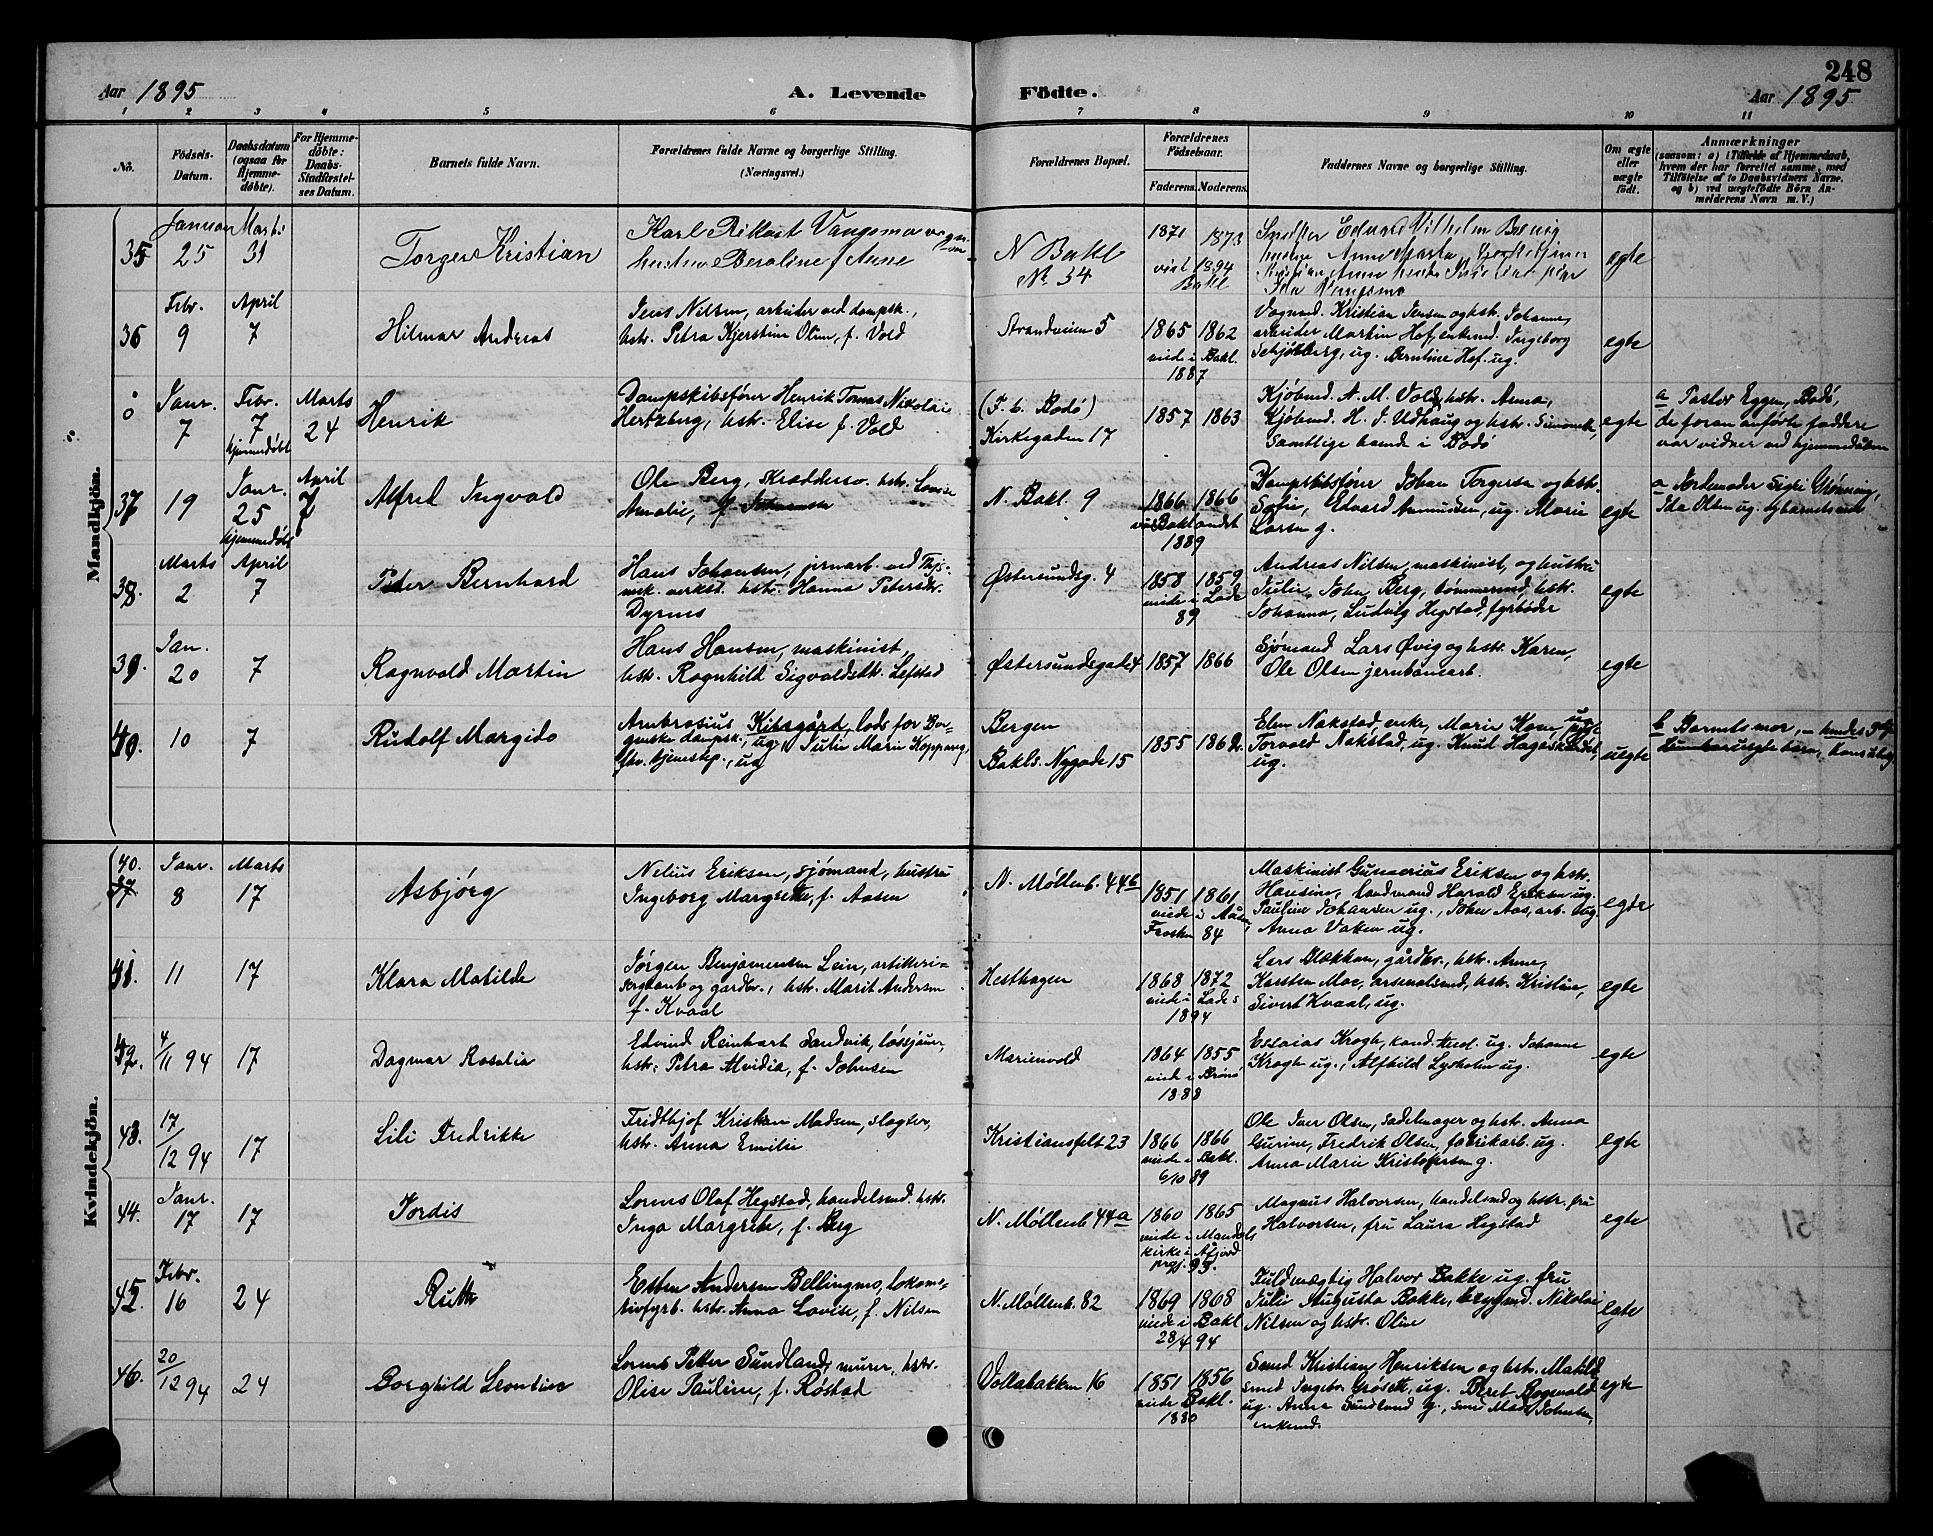 248
Aar 1895
A. Levende Födte.
Aar 1895
1 2 3 4 5 6 7 8 9 10 11
No.
Födsels-Datum.
Daabsdatum (ogsaa for Hjemmedöbte).
For Hjemmedöbte: Daabs-Stadfæstelses Datum.
Barnets fulde Navn.
Forældrenes fulde Navne og borgerlige Stilling.
(Næringsvei.)
Forældrenes Bopæl.
Forældrenes Födselsaar.
Faderens. Moderens.
Faddernes Navne og borgerlige Stilling.
Om ægte eller uægte födt.
Anmærkninger
(saasom: a) i Tilfælde af Hjemmedaab, hvem der har forrettet samme, med Tilföielse af to Daabsvidners Navne. og b) ved uægtefödte Börn Anmelderens Navn m. V.)
Mandkjön.
35
Januar 25
Marts 31
Torger Kristian
Karl Rikart Vangsmo
hustru Beroline f Aune
N Bakl
No 54
1871 1873
viet 1894
Bakl
egte
36
Febr. 9
April 7
Hilmar Andreas
Jens Nilsen, arbeider ved dampsk.,
hstr. Petra Kjerstine Oline, f. Vold
Strandveien 5
1865 1862
viede i Bakl.
1887
Vognmd. Kristian Jensen og hstr. Johanne,
arbeider Martin Hof, enkemd. Ingeborg
Schjølberg, ug. Berntine Hof ug.
egte
0
Janr. 7
Febr. 7
hjemmedøbt
Marts 24
Henrik
Dampskibsfører Henrik Tomas Nikolai
Hertzberg, hstr. Elise f. Vold
(F. b. Bodø)
Kirkegaden 17
1857 1863
Kjøbmd. N. M. Vold, hstr. Anna,
Kjøbmd. H. J. Udhaug og hstr. Simonette,
Samtlige boende i Bodø
egte
a Pastor Eggen, Bodø,
de foran anførte faddere
var vidner ved hjemmedåben
37
19
Janr. 25
hjemmedøbt
April 7
Alfred Ingvald
Ole Berg, skrædders. hstr. Lovise
Amalie, f. Johansen
N. Bakl. 9
1866 1866
viet Baklandet
1889
Dampskibsfører Johan Torgersen og hstr.
Sofie, Edvard Asmundsen, ug. Marie
Larsen g.
egte
a Jordemoder Sigri Grønning,
Ida Olsen ug.
38.
Marts 2
April 7
Peter Bernhard
Hans Johansen, jernarb. ved Thjs.
mek. verkst. hstr. Hanna Petersdtr.
Dyrnes
Østersundsg. 4
1858 1859
viede i Lade
89
Andreas Nilsen, maskinist, og hustru
Julie, John Berg, tømmermd, hstr.
Johanna, Ludvig Hegstad, fyrbøder
egte
39.
Jan. 20
7
Ragnvald Martin
Hans Hansen, maskinist,
hstr. Ragnhild Sigvaldsdtr. Lefstad
Østersundsgade 4
1857 1866
Sjømand Lars Øvig og hstr. Karen,
Ole Olsen jernbanearb.
egte
40.
10
7
Rudolf Margido
Ambrosius Kibsgård, lods for Ber-
genske dampsk., ug., Julie Marie Koppang,
fhv. tjenestep., ug
Bergen
Bakls. Nygade 15
1855 1862.
Elen Nakstad, enke, Marie
Torvald Nakstad, ug. Knud
ug.
uegte
b Barnets mor, – hendes 3die
Kvindekjön.
40.
37
Janr. 8
Marts 17
Asbjørg
Nelius Eriksen, sjømand, hustru
Ingeborg Margrethe, f. Aasen
N. Møllenb. 44b
1851 1861
viede i Åsen,
Frosten 84
Maskinist Gunnerius Eriksen og hstr.
Hansine, landmand Harald Eriksen ug.
Pauline Johansen ug., Johan Aas, arb. ug.
Anna Vaken ug.
egte
41.
11
17
Klara Matilde
Jørgen Benjaminsen Lein, artilleri-
sergeant og gårdbr., hstr. Marit Andersen
f. Kvaal
Hesthagen
1868 1872
viede i Lade
1894
Lars Blækkan, gårdbr., hstr. Anne,
Karsten Moe, arsenalsmd, hstr. Kristine,
Sivert Kvaal, ug.
egte
42.
4/11 94
17
Dagmar Rosalie
Edvind Reinhart Sandvik, løsejour,
hstr. Petra Alvidia, f. Johnsen
Marienvold
1864 1855
viede i Brønø
1888
Esaias Krogh, kand. med. ug. Johanne
Krogh ug., Alfhild Lysholm ug.
egte
43.
17/12 94
17
Lili Fredrikke
Fridthjof Kristian Madsen, slagter,
hstr. Anna Emilie
Kristiansfelt 23
1866 1866
viede i Bakl.
6/10 89
Ole Iver Olsen, sadelmager og hstr. Anna
Gurine, Fredrik Olsen, fabrikarb. ug.
Anna Marie Kristofersen g.
egte
44.
Janr. 17
17
Jordis
Lorens Olaf Hegstad, handelsmd. hstr.
Inga Margrete, f. Berg
N. Møllenb 44a
1860 1865
viede i Mandals
kirke i Åfjord
prgj. 93.
Magnus Halvorsen, handelsmd og hstr. fru
Halvorsen, fru Laura Hegstad
egte
45.
Febr. 16
24
Ruth
Esten Andersen Bellingmo, lokomo-
tivfyrb. hstr. Anna Lovise, f. Nilsen
N. Møllenb. 82
1869 1868
viede i Bakl
28/4 94
Fuldmægtig Halvor Bakke ug. fru
Julie Augusta Bakke, brygmd. Nikolai
Nilsen og hstr. Oline
egte
46.
20/12 94
24
Borghild Leontine
Lorens Petter Sundland, murer, hstr.
Olise Pauline, f. Røstad
Vollabakken 16
1851 1856
viede Bakl.
1880
Smed Kristian Henriksen og hstr. Matilde
smed Ingebr. Grøseth, ug. Beret Rogevold
ug. Anna Sundland g., smed Mads Johnsen,
enkemd.
egte